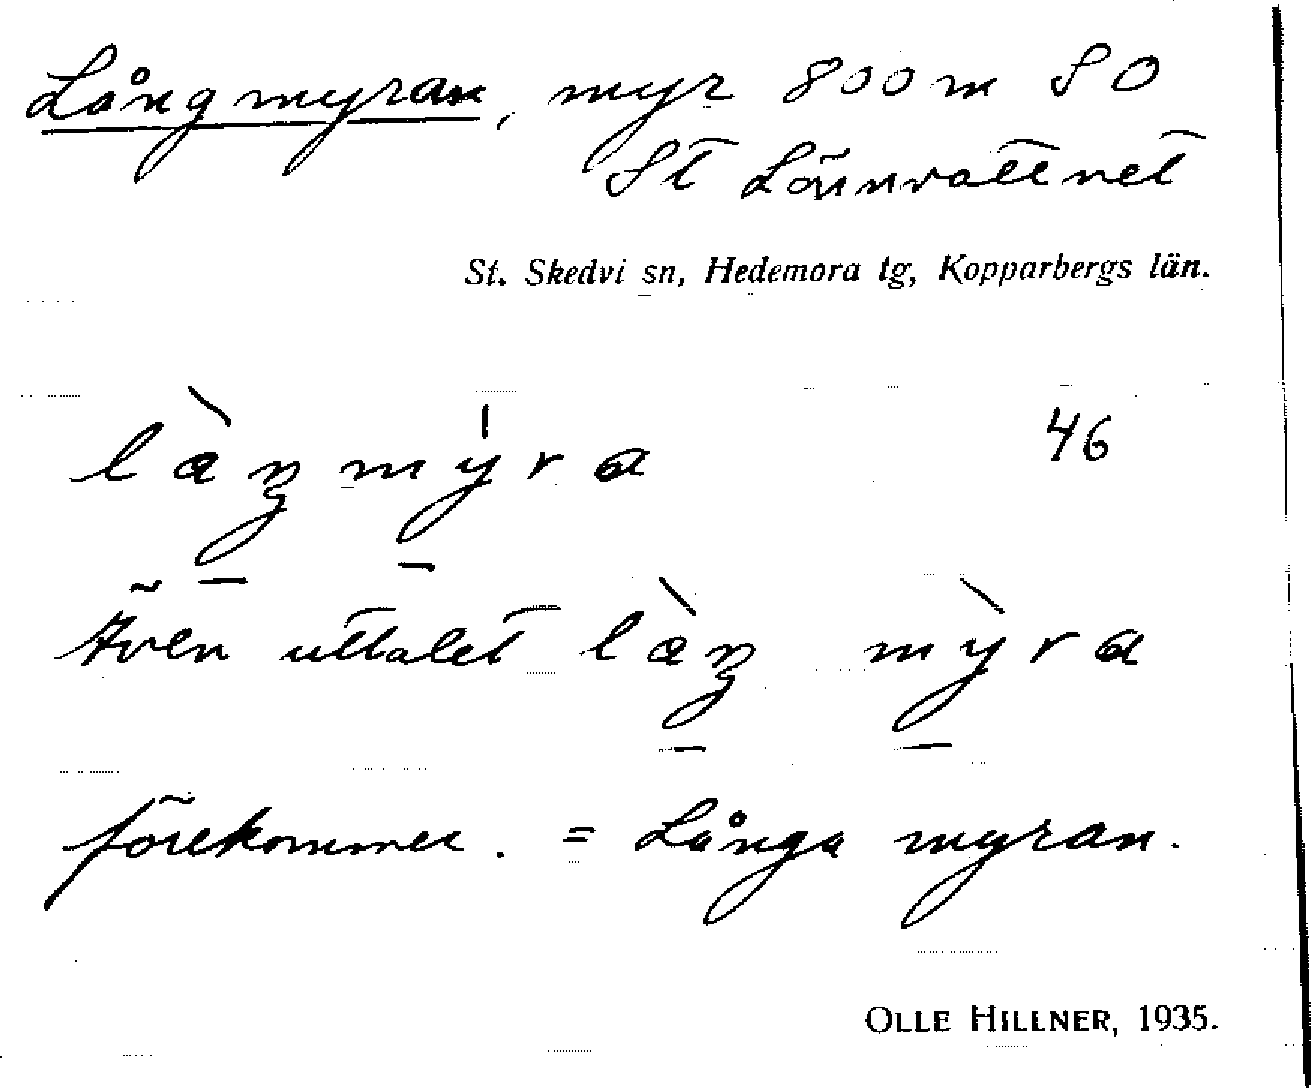 Långmyran, myr 800 m SO
St Lönnvattnet
St. Skedvi sn, Hedemora tg, Kopparbergs län.
46
Även uttalet
förekommer. = Långa myran.
OLLE HILLNER, 1935.